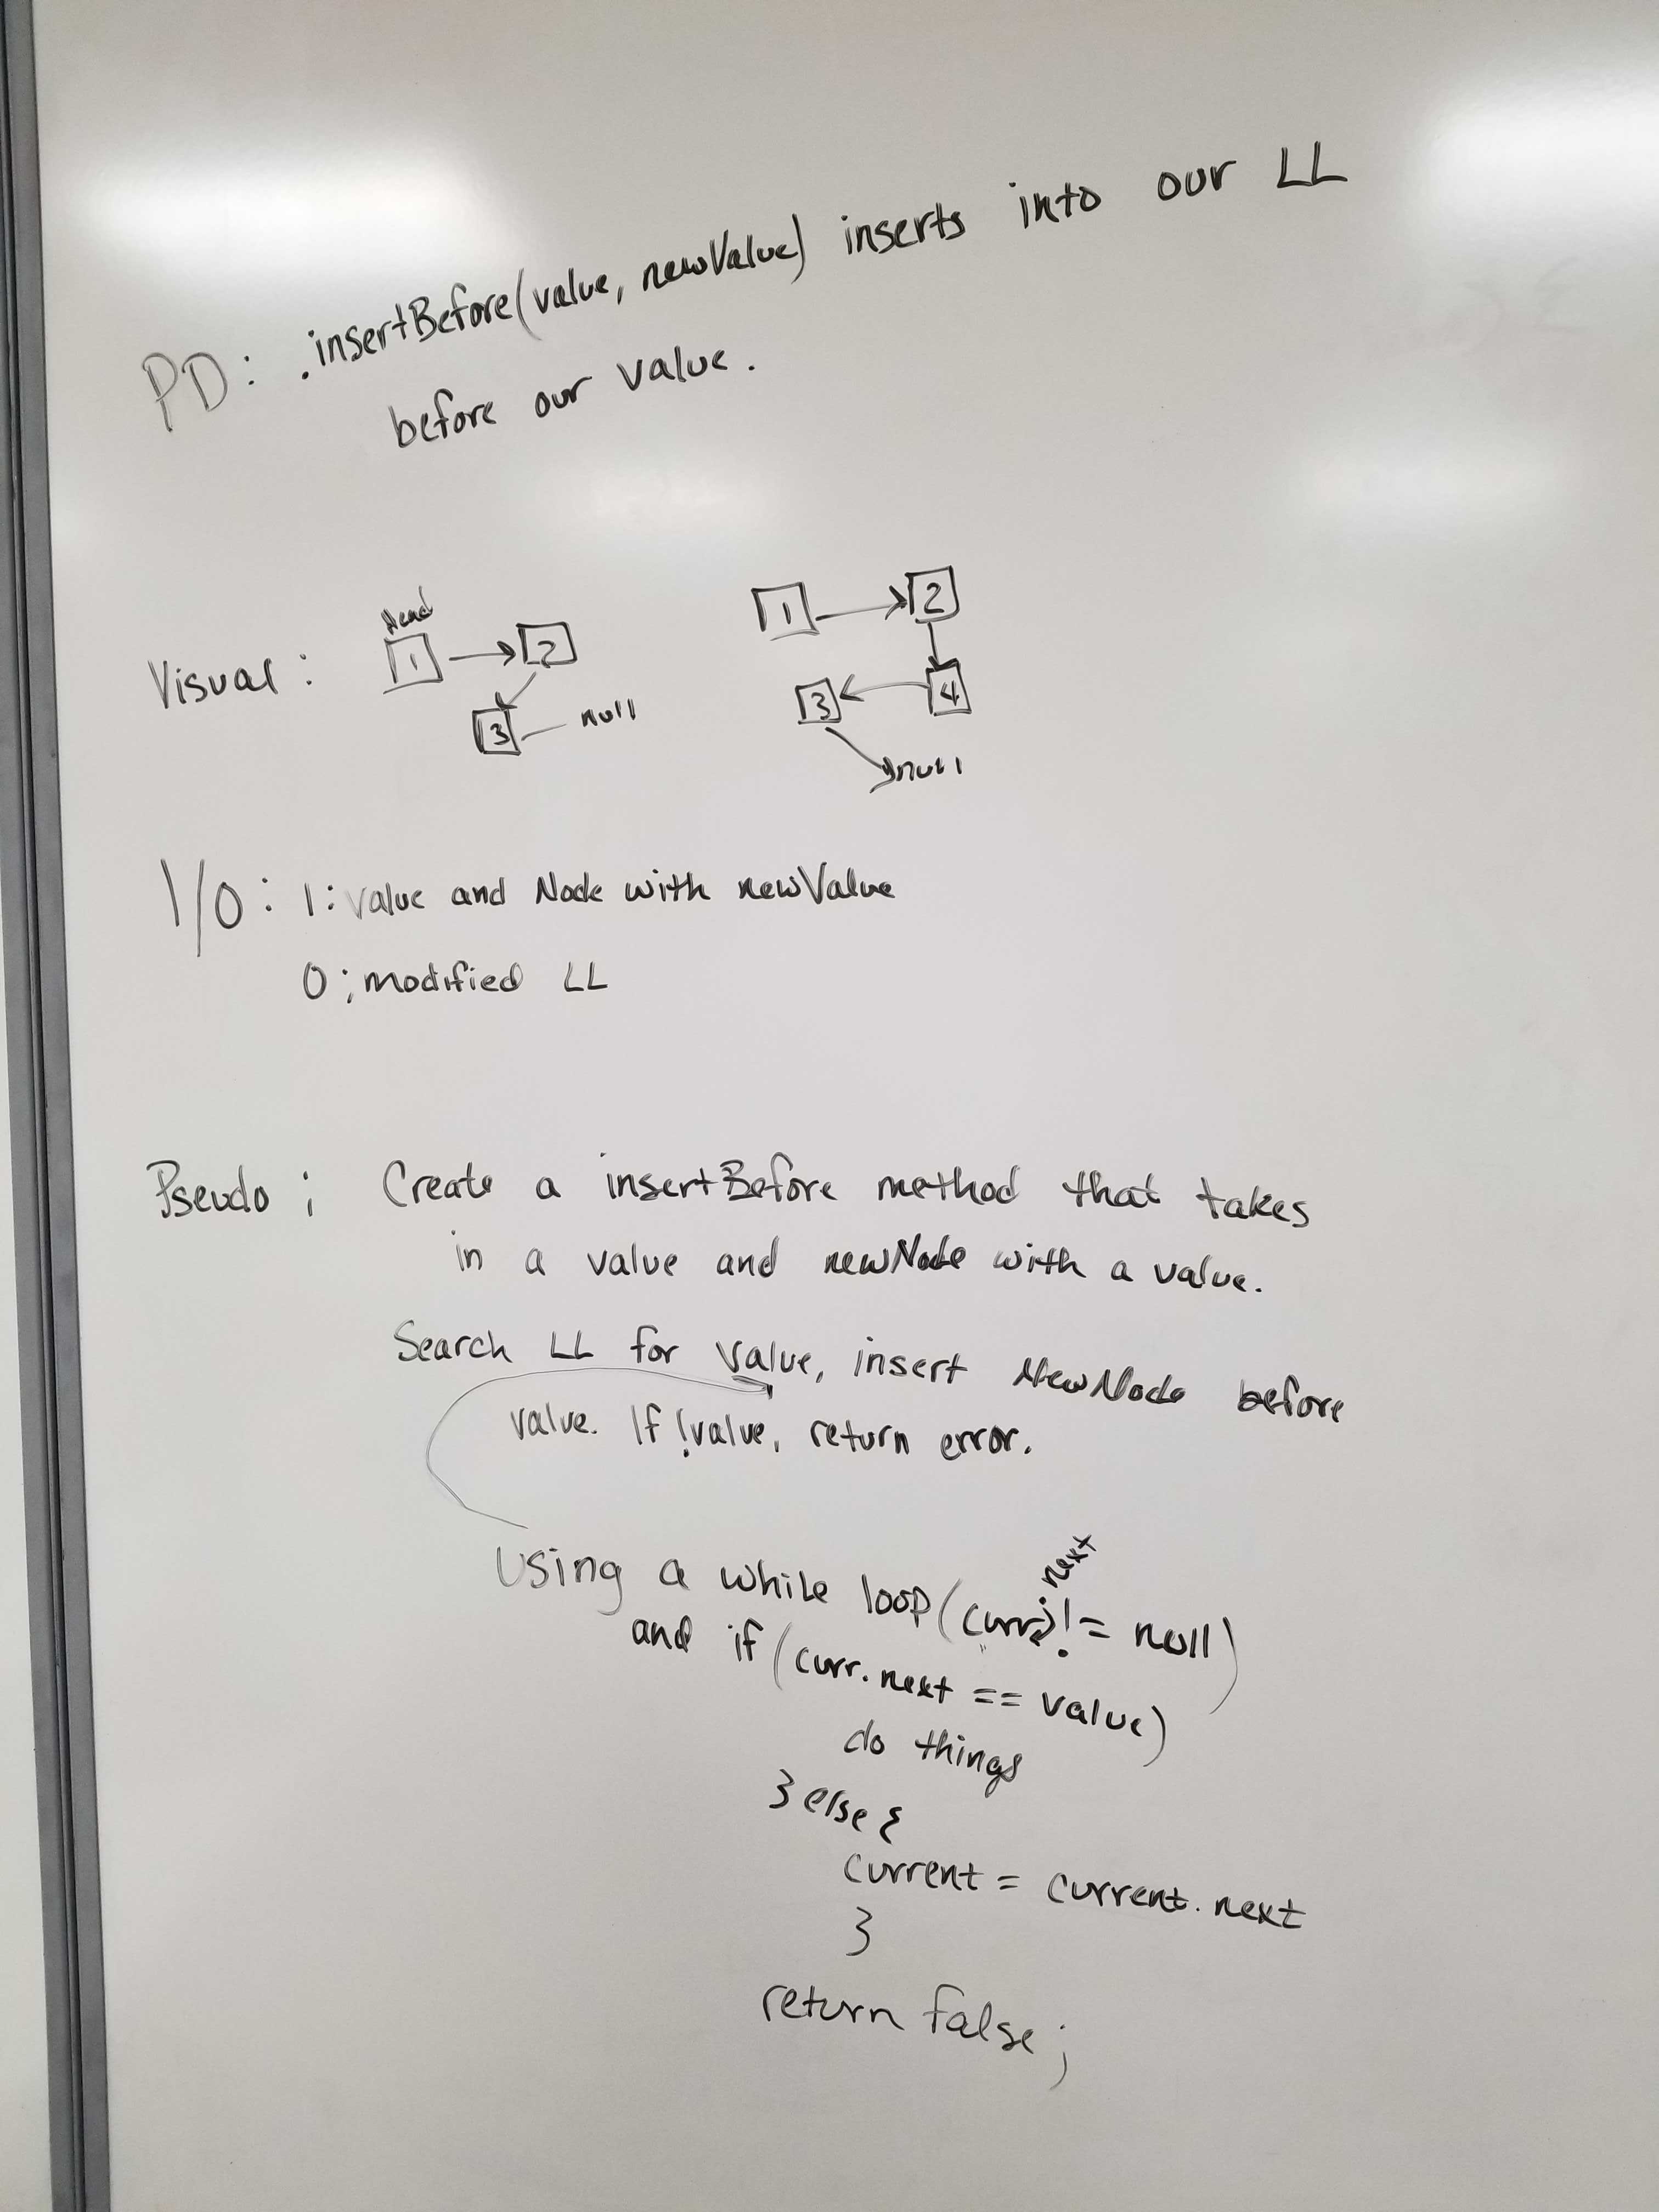 PD: .insertBefore(value, newValue) inserts into our LL
before our value.
Visual:
Head
1 2
3 null
1 2
3 4
null
I/O: I: value and Node with newValue
O; modified LL
Pseudo; Create a insertBefore method that takes
in a value and newNode with a value.
Search LL for value, insert NewNode before
value. If !value, return error.
Using a while loop(curr.next != null)
and if (curr.next == value)
do things
} else {
current = current.next
}
return false;